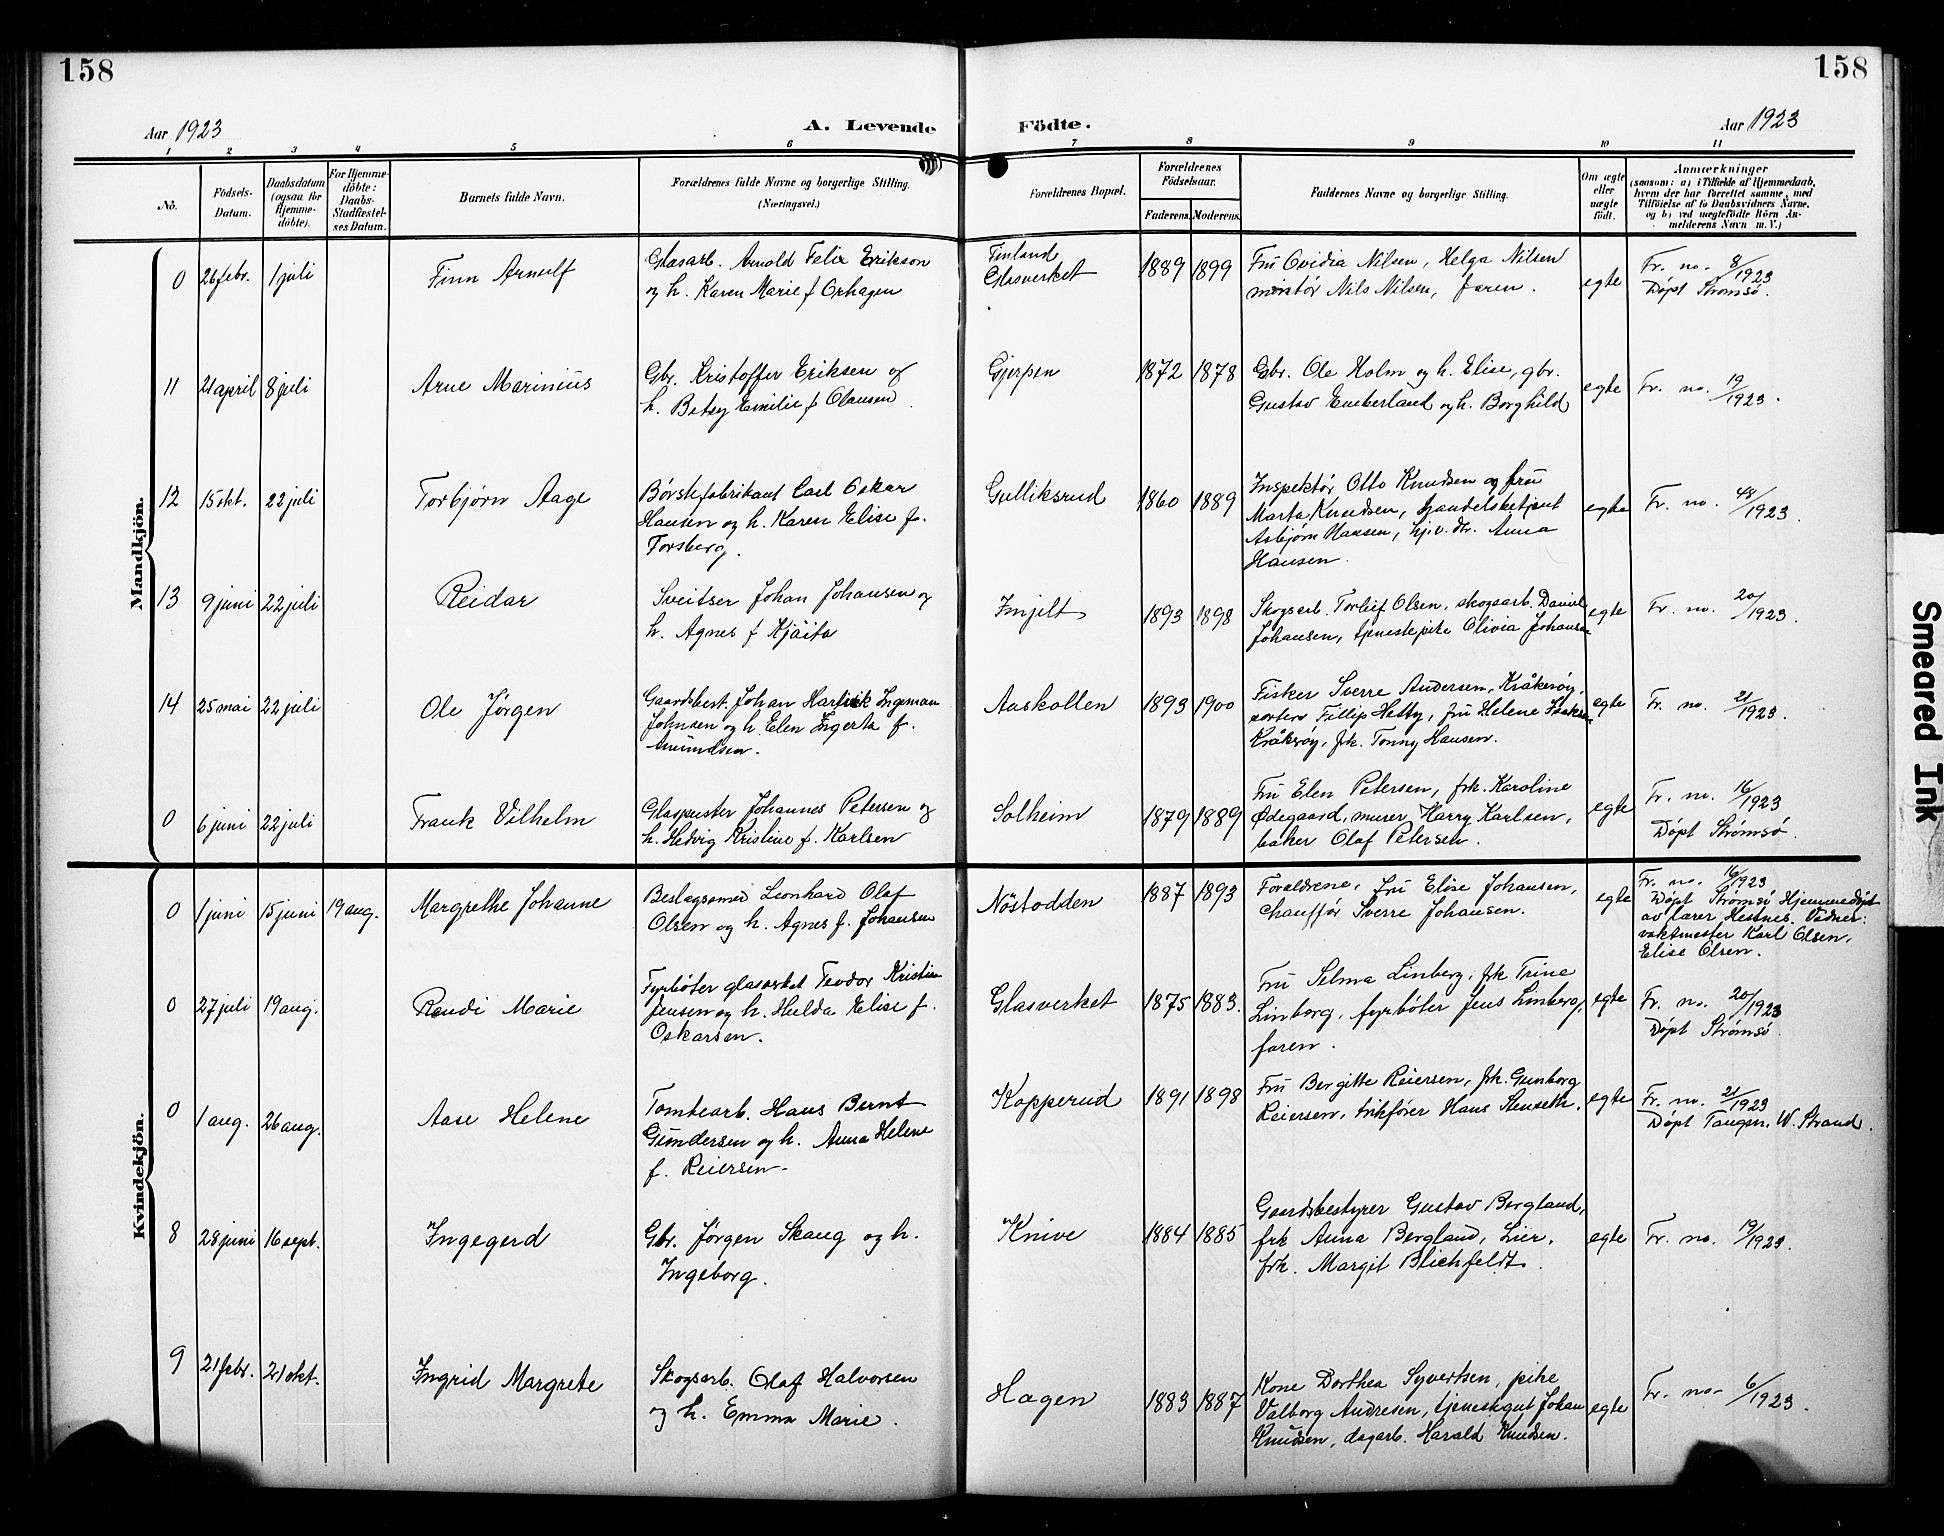 158
158
Aar 1923
A. Levende
Födte.
Aar 1923
1 2 3 4 5 6 7 8 9 10 11
No.
Födsels-
Datum.
Daabsdatum
(ogsaa for
Hjemme-
döbte).
For Hjemme-
döbte:
Daabs-
Stadfæstel-
ses Datum.
Barnets fulde Navn.
Forældrenes fulde Navne og borgerlige Stilling.
(Næringsvei.)
Forældrenes Bopæl.
Forældrenes
Födselsaar.
Faderens. Moderens.
Faddernes Navne og borgerlige Stilling.
Om ægte
eller
uægte
født.
Anmærkninger
(saasom: a) i Tilfælde af Hjemmedaab,
hvem der har forrettet samme, med
Tilföielse af to Daabsvidners Navne,
og b) ved uægtefödte Börn An-
melderens Navn m. V.)
Mandkjön.
0 26 febr. 1 juli
Finn Arnulf
Glasarb. Arnold Felix Erikson
og h. Karen Marie f Orhagen
Finland
Glasverket
1889 1899
Fru Ovidia Nilsen, Helga Nilsen
montør Nils Nilsen, faren.
egte
Fr. no. 8/1923
Døpt Strømsø.
11 21 april 8 juli
Arne Marinius
Gbr. Kristoffer Eriksen og
h. Betsy Emilie f Olausen
Gjerpen
1872 1878
Gbr. Ole Holm og h. Elise, gbr.
Gustav Emberland og h. Borghild
egte
Fr. no. 19/1923.
12 15 okt. 22 juli
Torbjørn Aage
Børstefabrikant Carl Oskar
Hansen og h. Karen Elise f.
Forsberg.
Gulliksrud
1860 1889
Inspektør Otto Knudsen og fru
Marta Knudsen, handelsbetjent
Asbjørn Hansen, hj.v. dr. Anna
Hansen.
egte
Fr. no. 48/1923.
13 9 juni 22 juli
Reidar
Sveitser Johan Johansen og
h. Agnes f Kjäita
Imjelt
1893 1898
Skogsarb. Torleif Olsen, skogsarb. Daniel
Johansen, tjenestepike Olivia Johansen
egte
Fr. no. 20/1923.
14 25 mai 22 juli
Ole Jørgen
Gaardsbest. Johan Hartvik Ingeman
Johnsen og h. Elen Ingerta f.
Amundsen.
Aaskollen
1893 1900
Fisker Sverre Andersen, Kråkerøy,
sorterer Fillip Hetty, fru Helene Isaksen
Kråkerøy, frk. Tonny Hansen.
egte
Fr. no. 21/1923.
0 6 juni 22 juli
Frank Vilhelm
Glaspuster Johannes Petersen og
h. Hedvig Kristine f. Karlsen
Solheim
1879 1889
Fru Elen Petersen, frk. Karoline
Ødegaard, murer Harry Karlsen,
baker Olaf Petersen.
egte
Fr. no. 16/1923
Døpt Strømsø.
Kvindekjön.
0 1 juni 15 juni 19 aug.
Margrethe Johanne
Beslagsmed Leonhard Olaf
Olsen og h. Agnes f. Johansen
Nöstodden
1887 1893
Foreldrene, fru Elise Johansen,
chauffør Sverre Johansen.
egte
Fr. no. 16/1923
Døpt Strømsø Hjemmedøpt
av lærer Hestnes. Vidner:
vaktmester Karl Olsen,
Elise Olsen.
0 27 juli 19 aug.
Randi Marie
Fyrbøter glasverket Teodor Kristian
Jensen og h. Hulda Elise f.
Oskarsen.
Glasverket
1875 1883.
Fru Selma Linberg, frk Trine
Linborg, fyrbøter Jens Linberg,
faren.
egte
Fr. no. 20/1923
Døpt Strømsø.
0 1 aug. 26 aug.
Aase Helene
Tomtearb. Hans Bernt
Gundersen og h. Anna Helene
f. Reiersen-
Kopperud
1891 1898
Fru Bergitte Reiersen, frk. Gunborg
Reiersen, trikfører Hans Stenseth.
egte
Fr. no. 21/1923
Døpt Tangen. W. Strand.
8 28 juni 16 sept.
Ingegerd
Gbr. Jørgen Skaug og h.
Ingeborg.
Knive
1884 1885
Gaardsbestyrer Gustav Bergland,
frk Anna Bergland, Lier,
frk. Margit Blichfeldt.
egte
Fr. no. 19/1923.
9 21 febr. 21 okt.
Ingrid Margrete
Skogsarb. Olaf Halvorsen
og h. Emma Marie.
Hagen
1883 1887
Kone Dorthea Syvertsen, pike
Valborg Andresen, tjenestgut Johan
Knudsen, dagarb. Harald Knudsen.
egte
Fr. no- 6/1923.
Smeared Ink